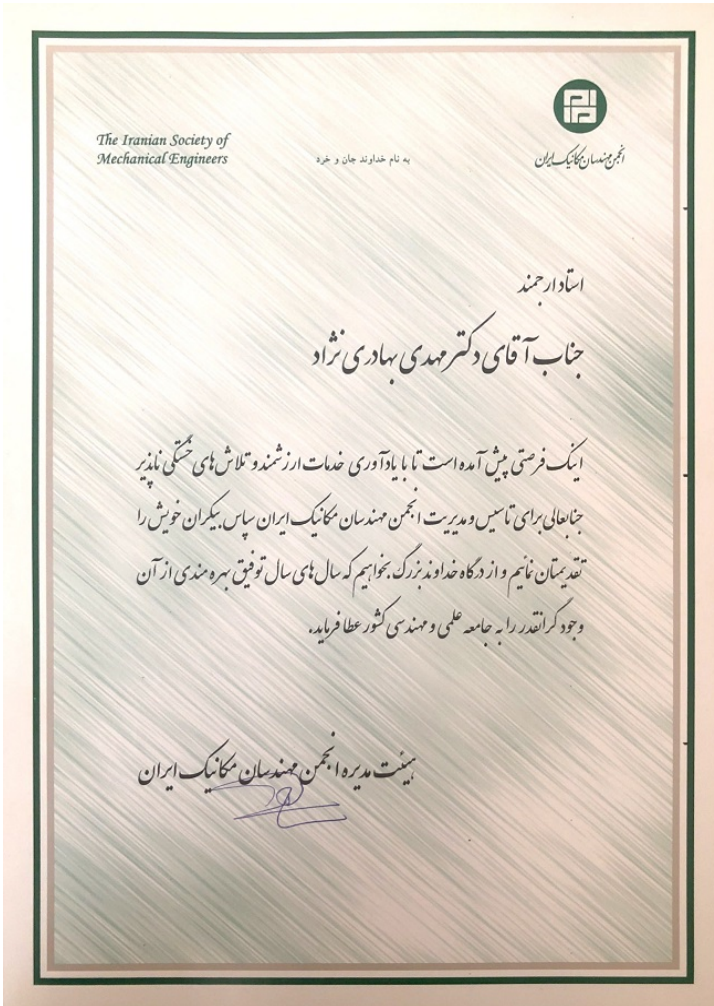 The Iranian Society of
Mechanical Engineers
به نام خداوند جان و خرد
انجمن مهندسان مکانیک ایران
استاد ارجمند
جناب آقای دکتر مهدی بهادری نژاد
اینک فرصتی پیش آمده است تا با یادآوری خدمات ارزشمند و تلاش های خستگی ناپذیر
جنابعالی برای تاسیس و مدیریت انجمن مهندسان مکانیک ایران سپاس بیکران خویش را
تقدیمتان نمائیم و از درگاه خداوند بزرگ بخواهیم که سال های سال توفیق بهره مندی از آن
وجود گرانقدر را به جامعه علمی و مهندسی کشور عطا فرماید.
هیئت مدیره انجمن مهندسان مکانیک ایران